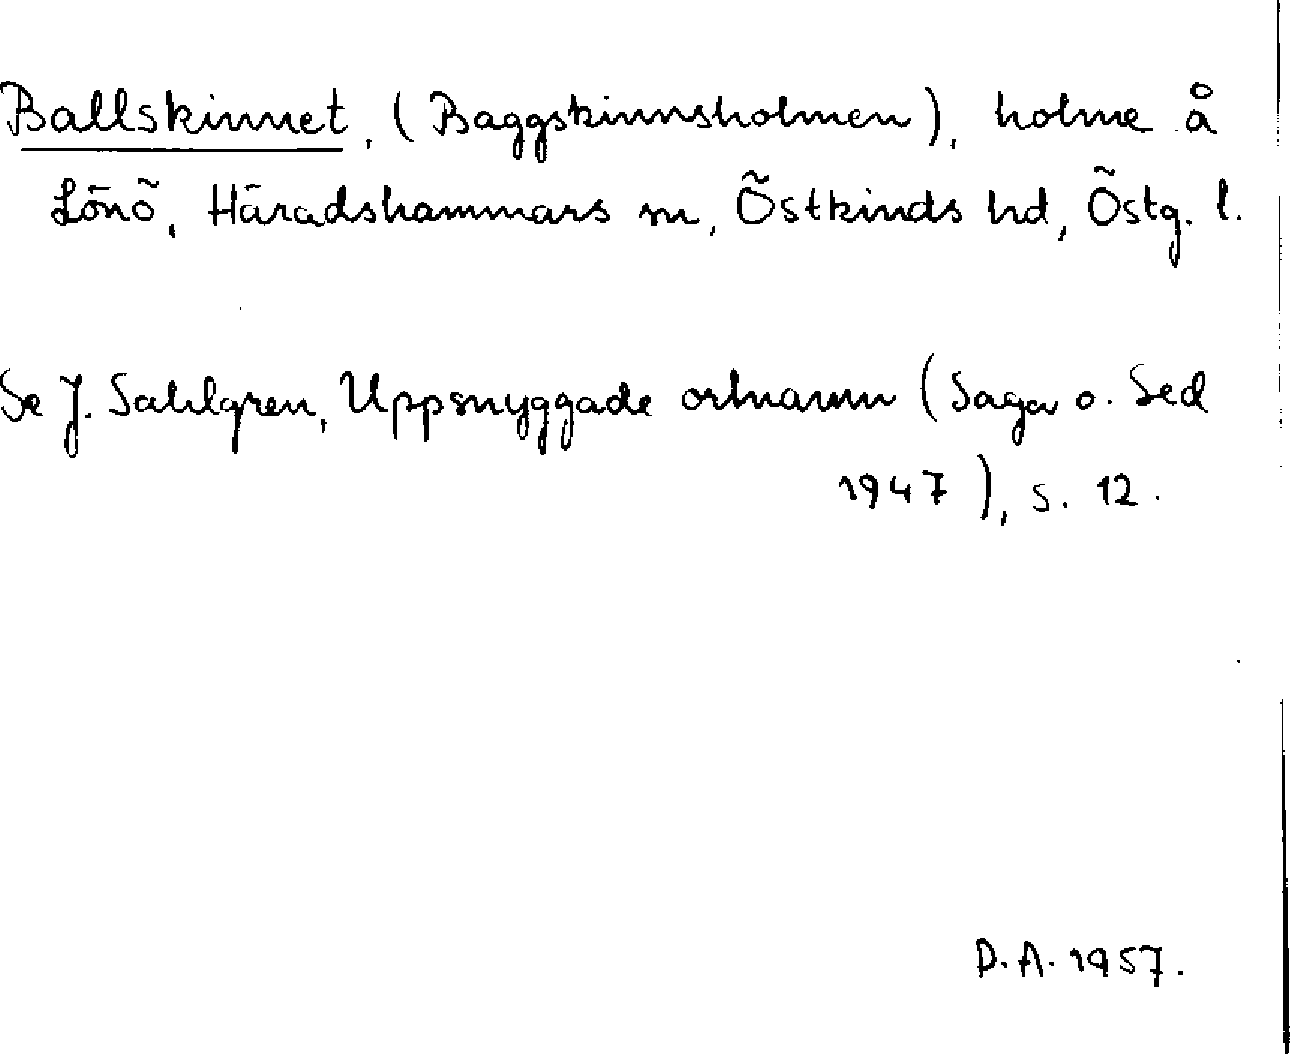 Ballskinnet, (Baggskinnsholmen), holme å
Lönö, Häradshammars sn, Östkinds hd, Östg. l.
Se J. Sahlgren, Uppsnyggade ortnamn (Saga o. Sed
1947), s. 12.
D.A. 1957.